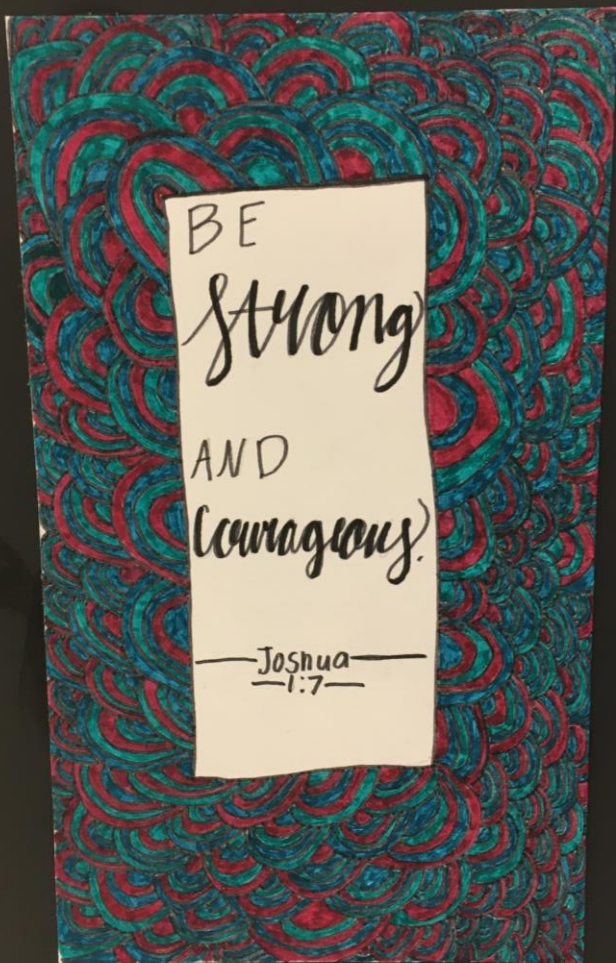 BE
Strong
AND
Courageous.
Joshua
1:7